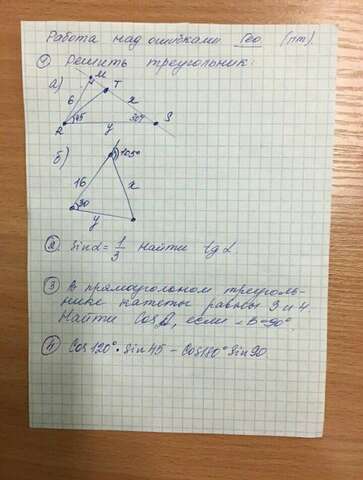 Работа над ошибками Гео. (пт).
① Решить треугольник:
а) M T
6 x
R 45 30° S
y
б) 105°
16 x
30
y
② Sinα = 1/3 Найти tg α
③ В прямоугольном треуголь-
нике катеты равны 3 и 4
Найти Cos A, если ∠B=90°.
④ Cos 120° · Sin 45 - Cos 180° Sin 90